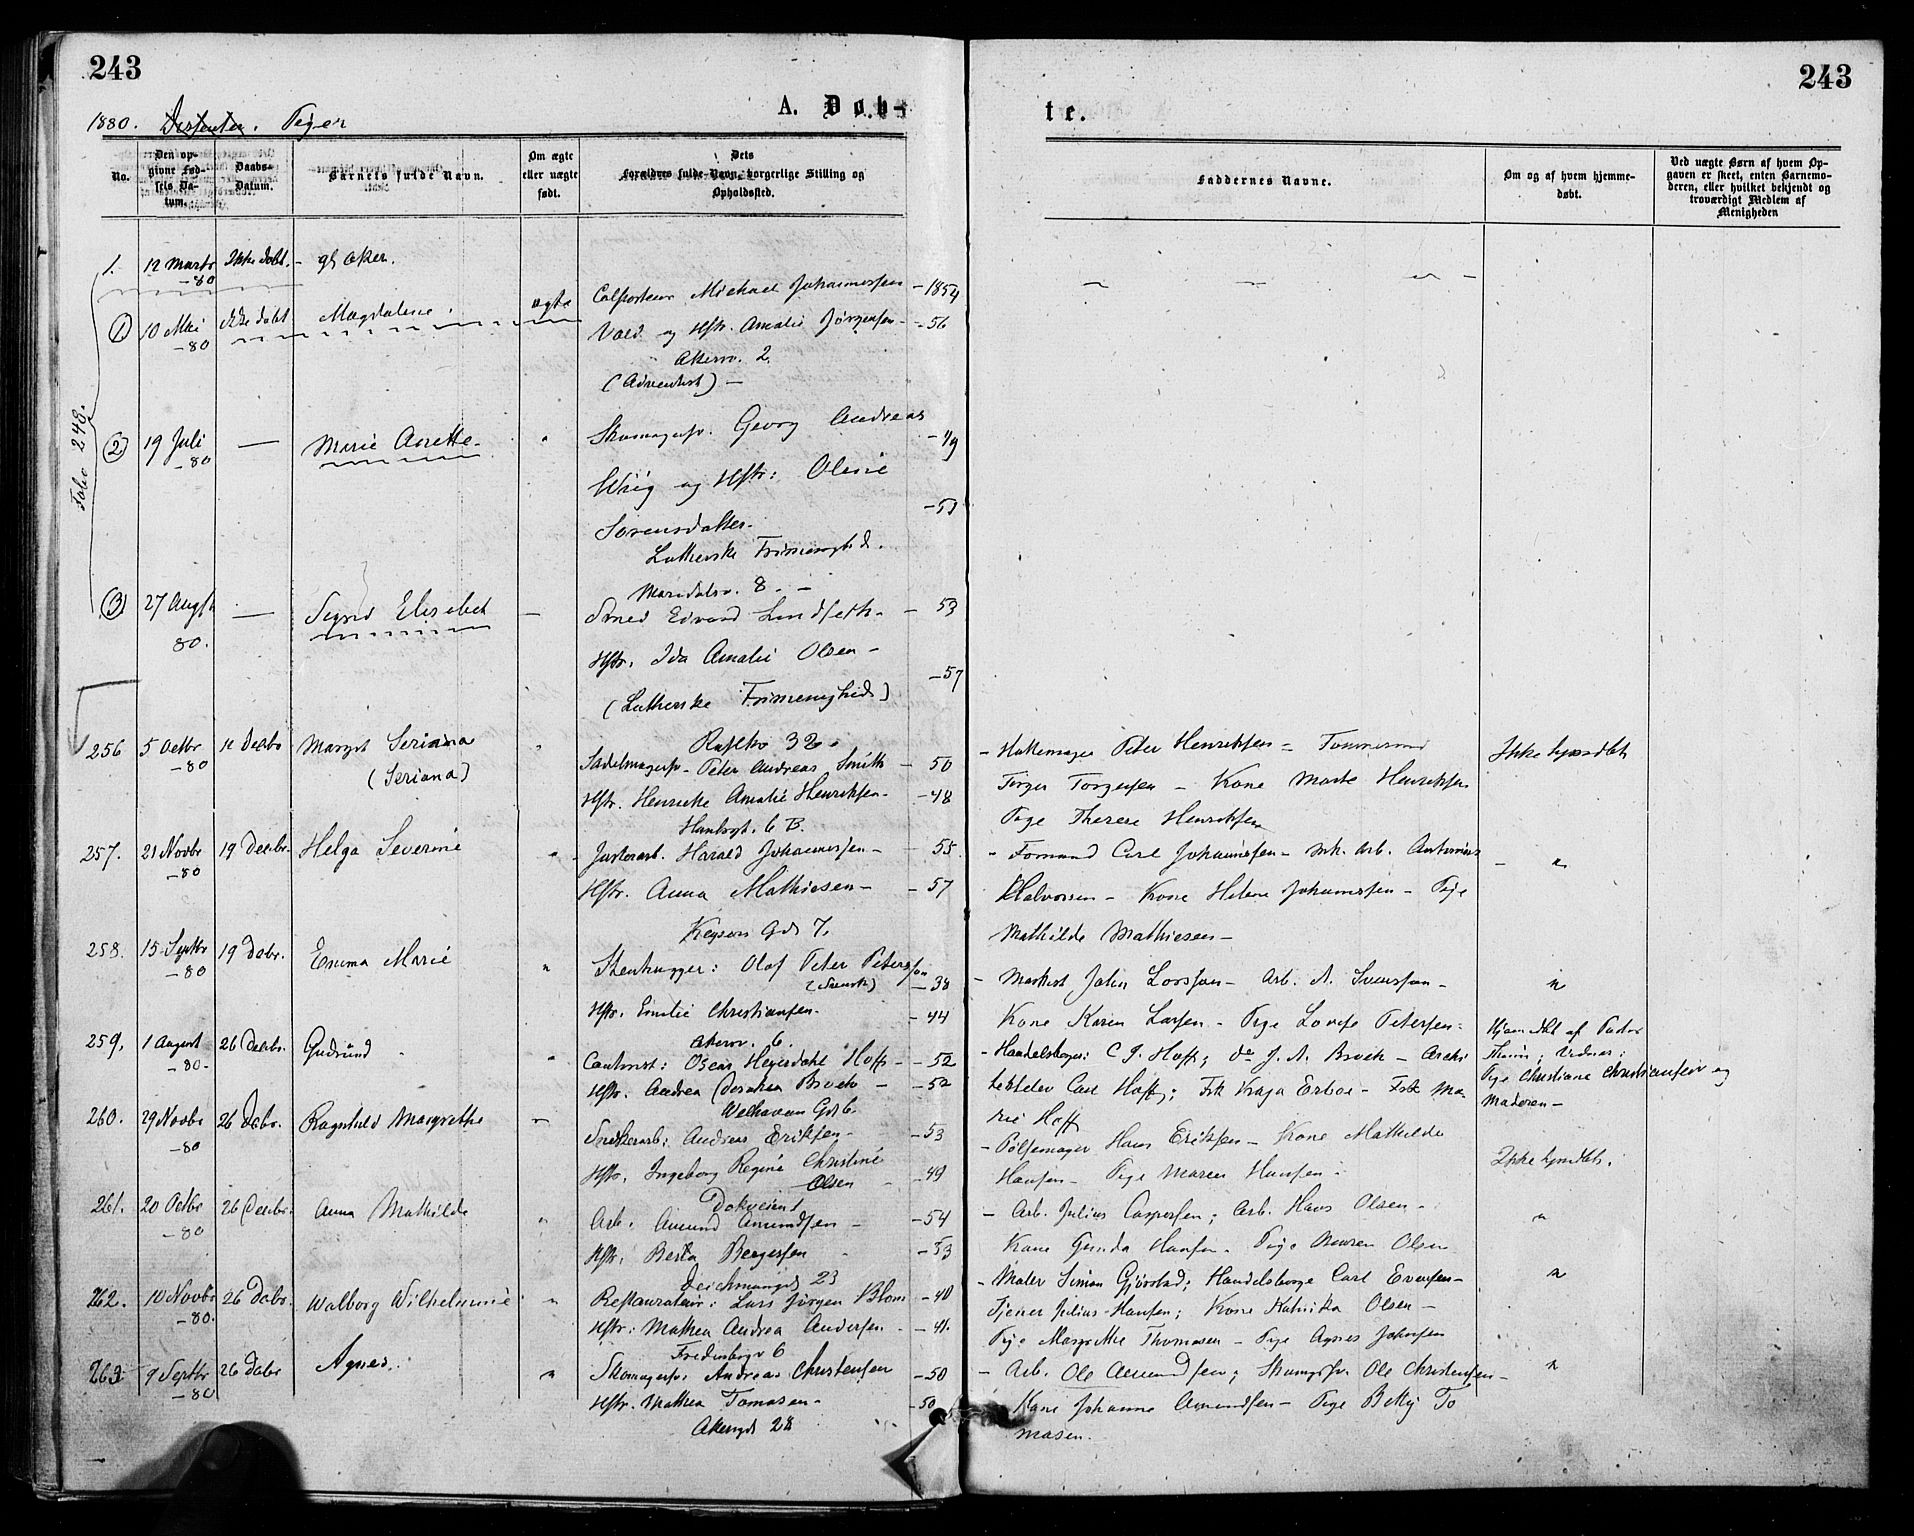 243
243
1880. Dissenter. Piger
A. Døb-
te.
No.
Den op-
givne Fød-
sels Da-
tum.
Daabs-
Datum.
Barnets fulde Navn.
Om ægte
eller uægte
født.
Dets
Forældres fulde Navn, borgerlige Stilling og
Opholdssted.
Faddernes Navne.
Om og af hvem hjemme-
døbt.
Ved uægte Børn af hvem Op-
gaven er skeet, enten Barnemo-
deren, eller hvilket bekjendt og
troværdigt Medlem af
Menigheden
Folio 248.
1. 12 Marts -80 Ikke døbt. - gl Aker.
① 10 Mai -80 Ikke døbt Magdalene. ægte Colporteur Michael Johannessen - 1854
og Hstr. Amalie Jørgensen - -56
Akersv. 2.
(Adventist) -
② 19 Juli -80 — Marie Anette. " Skomagersv. Georg Andreas - 49
Wiig og Hstr: Oline
-53
Sorensdatter.
Lutherske Frimenighed.
Maridalsv. 8. -
③ 27 Augst 80. — Sigrid Elisabet — Smed Edvard Lindseth - - 53
Hstr. Ida Amalie Olsen -
-57
(Lutherske Frimenighed)
256 5 Octbr -80 12 Decbr Margit Seriana " 32.
(Seriana) Sadelmagersv. Peter Andreas Smith - 50
Hstr. Henrikke Amalie Henriksen - -48
6 B.
- Hattemager Peter Henriksen - Tømmermand
Torgersen - Kone Marte Henriksen
Pige Therese Henriksen
Ikke hjemdbt
257. 21 Novbr -80 19 Decbr. Helga Severine " Harald Johannessen - - 55.
Hstr. Anna Mathiesen - - 57
Keysers Gd 7.
- Formand Carl Johannesen - Arb. Antonius
Halvorsen - Kone Helene Johannesen - Pige
Mathilde Mathiesen -
- "
258. 15 Septbr -80 19 Decbr. Emma Marie " Stenhugger: Olof Peter Petersson
(Svensk) - 38
Hstr. Emilie Christiansen. - 44
Akersv. 6.
- John Larsson - Arb. A. Svensson -
Kone Karen Larsen - Pige Petersen -
"
259. 1 August -80- 26 Decbr. Gudrund " Contorist: Oscar Heyerdahl Hoff - - 52
Hstr. Andrea Dorothea Broch - - 52
Welhavens Gd 6.
- Handelsborger: C. J. Hoff; do J. A. Broch - Archi
tektelev Carl Hoff; Frk Kaja Erboe - Frk Ma-
rie Hoff
Hjemdbt af
Pige Christiane Christiansen og
Moderen -
260. 29 Novbr -80 26 Decbr. Ragnhild Margrethe " Snedkerarb: Andreas Eriksen - - 53
Hstr. Ingeborg Regine Christine
Olsen - -49
Dokveien 1
- Pølsemager Hans Eriksen - Kone Mathilde
Hansen - Pige Maren Hansen -
Ikke hjemdbt.
261. 20 Octbr -80 26 Decbr. Anna Mathilde " Arb. Amund Amundsen - - 54
Hstr. Berta Bergersen - 53
Deichmansgd 23
- Arb. Julius Caspersen; Arb. Hans Olsen -
Kone Gunda Hansen. Pige Maren Olsen
"
262. 10 Novbr -80. 26 Decbr. Walborg Wilhelmine " Restauratør: Lars Jørgen Blom - 40
Hstr: Mathea Andrea Andersen - - 41.
Fredensborgv 6
- Maler Simon Gjørstad; Handelsborger Carl Evensen -
Tjener Julius Hansen; Kone Katrika Olsen -
Pige Margrethe Thomasen - Pige Agnes Johnsen
"
263. 9 Septbr -80 26 Decbr Agnes. " Skomagersv. Andreas Christensen - 50
Hstr. Mathea Tomasen - - 50
Akersgd 28
- Arb. Ole Amundsen; Skomgsv. Ole Christensen -
Kone Johanne Amundsen - Pige Betty To
masen.
"